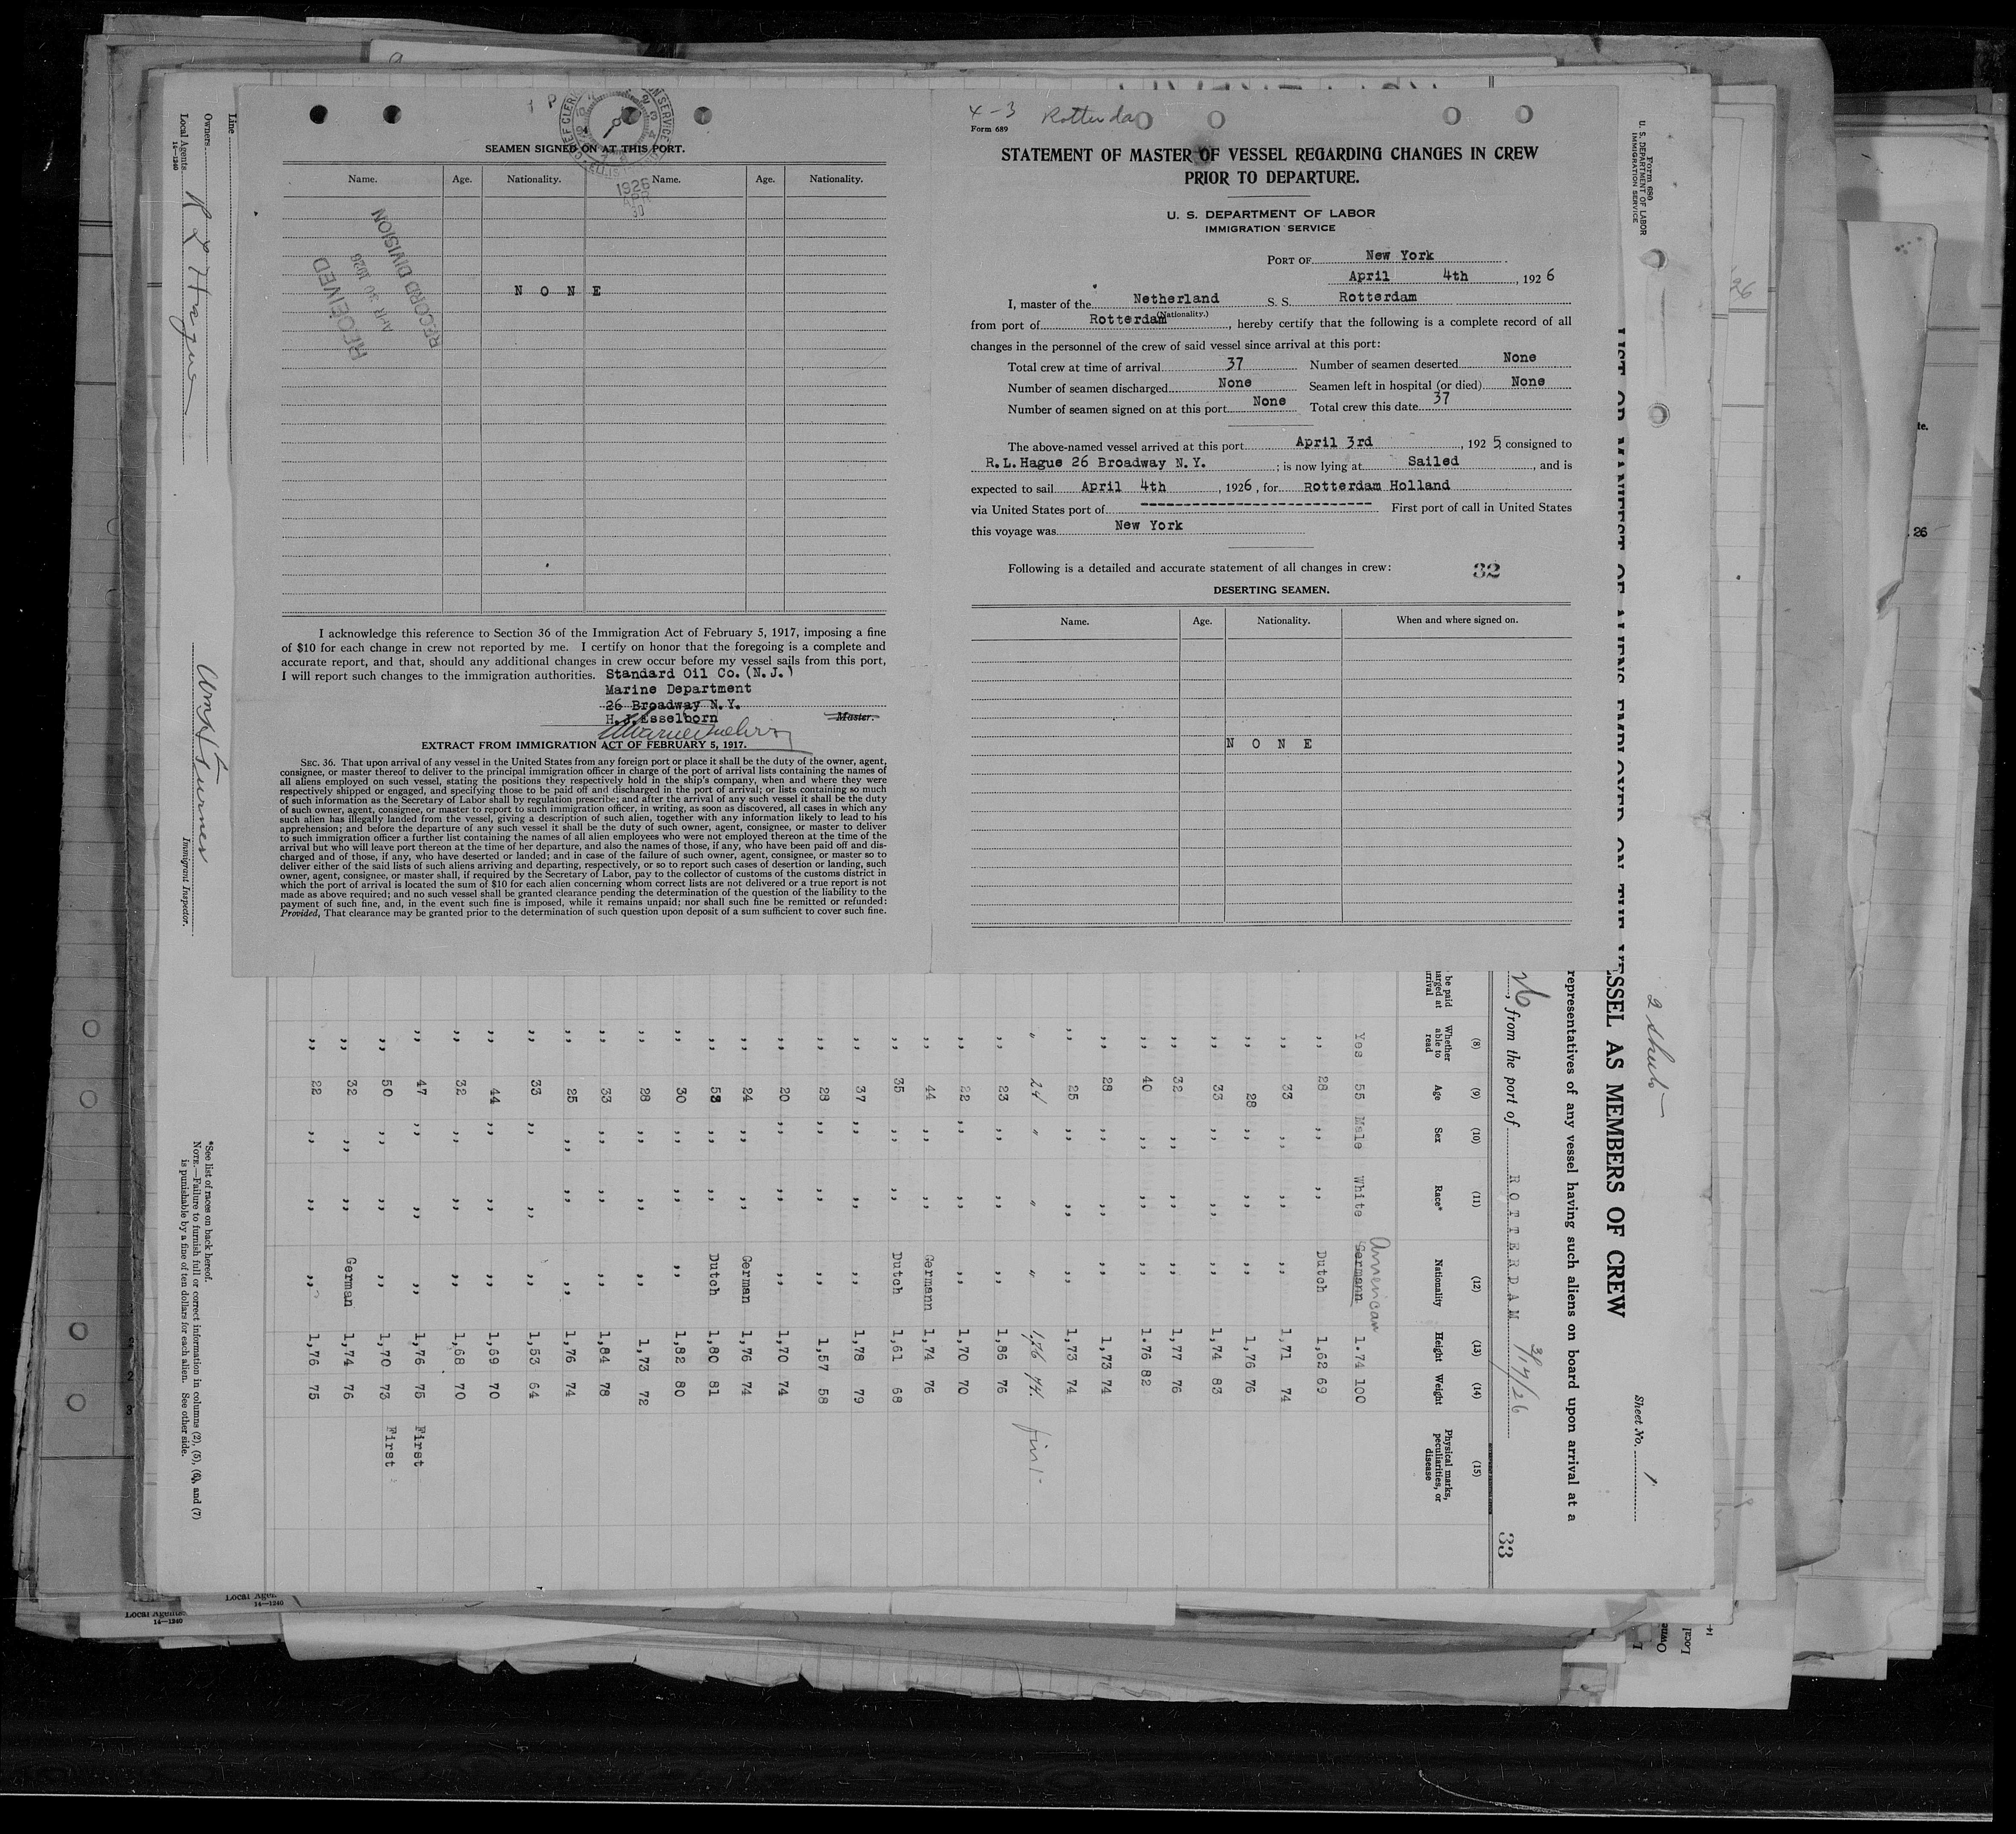 SEAMEN SIGNED ON AT THIS PORT.
Name. Age. Nationality. Name. Age. Nationality.
1926
APR
30
RECEIVED
APR 30 1926
RECORD DIVISION
N O N E
I acknowledge this reference to Section 36 of the Immigration Act of February 5, 1917, imposing a fine
of $10 for each change in crew not reported by me. I certify on honor that the foregoing is a complete and
accurate report, and that, should any additional changes in crew occur before my vessel sails from this port,
I will report such changes to the immigration authorities. Standard Oil Co. (N.J.)
Marine Department
26 Broadway N.Y.
H.J.Esselborn Master.
EXTRACT FROM IMMIGRATION ACT OF FEBRUARY 5, 1917.
SEC. 36. That upon arrival of any vessel in the United States from any foreign port or place it shall be the duty of the owner, agent,
consignee, or master thereof to deliver to the principal immigration officer in charge of the port of arrival lists containing the names of
all aliens employed on such vessel, stating the positions they respectively hold in the ship's company, when and where they were
respectively shipped or engaged, and specifying those to be paid off and discharged in the port of arrival; or lists containing so much
of such information as the Secretary of Labor shall by regulation prescribe; and after the arrival of any such vessel it shall be the duty
of such owner, agent, consignee, or master to report to such immigration officer, in writing, as soon as discovered, all cases in which any
such alien has illegally landed from the vessel, giving a description of such alien, together with any information likely to lead to his
apprehension; and before the departure of any such vessel it shall be the duty of such owner, agent, consignee, or master to deliver
to such immigration officer a further list containing the names of all alien employees who were not employed thereon at the time of the
arrival but who will leave port thereon at the time of her departure, and also the names of those, if any, who have been paid off and dis-
charged and of those, if any, who have deserted or landed; and in case of the failure of such owner, agent, consignee, or master so to
deliver either of the said lists of such aliens arriving and departing, respectively, or so to report such cases of desertion or landing, such
owner, agent, consignee, or master shall, if required by the Secretary of Labor, pay to the collector of customs of the customs district in
which the port of arrival is located the sum of $10 for each alien concerning whom correct lists are not delivered or a true report is not
made as above required; and no such vessel shall be granted clearance pending the determination of the question of the liability to the
payment of such fine, and, in the event such fine is imposed, while it remains unpaid; nor shall such fine be remitted or refunded:
Provided, That clearance may be granted prior to the determination of such question upon deposit of a sum sufficient to cover such fine.
4-3 Rotterda
Form 689
STATEMENT OF MASTER OF VESSEL REGARDING CHANGES IN CREW
PRIOR TO DEPARTURE.
U. S. DEPARTMENT OF LABOR
IMMIGRATION SERVICE
PORT OF New York
April 4th, 1926
I, master of the Netherland S. S. Rotterdam
(Nationality.)
from port of Rotterdam, hereby certify that the following is a complete record of all
changes in the personnel of the crew of said vessel since arrival at this port:
Total crew at time of arrival 37 Number of seamen deserted None
Number of seamen discharged None Seamen left in hospital (or died) None
Number of seamen signed on at this port None Total crew this date 37
The above-named vessel arrived at this port April 3rd, 1925, consigned to
R.L.Hague 26 Broadway N.Y.; is now lying at Sailed, and is
expected to sail April 4th, 1926, for Rotterdam Holland
via United States port of ---------------------------- First port of call in United States
this voyage was New York
Following is a detailed and accurate statement of all changes in crew: 32
DESERTING SEAMEN.
Name. Age. Nationality. When and where signed on.
N O N E
Form 680
U. S. DEPARTMENT OF LABOR
IMMIGRATION SERVICE
2 sheets
Sheet No. 1
VESSEL AS MEMBERS OF CREW
representatives of any vessel having such aliens on board upon arrival at a
, from the port of ROTTERDAM 3/17/26
33
(8) (9) (10) (11) (12) (13) (14) (15)
Whether able to read Age Sex Race* Nationality Height Weight Physical marks, peculiarities, or disease
Yes 55 Male White Germann American 1.74 100
,, 28 ,, ,, Dutch 1,62 69
,, 33 ,, ,, ,, 1,71 74
,, 28 ,, ,, ,, 1,76 76
,, 33 ,, ,, ,, 1,74 83
,, 32 ,, ,, ,, 1,77 76
,, 40 ,, ,, ,, 1.76 82
,, 28 ,, ,, ,, 1,73 74
,, 25 ,, ,, ,, 1,73 74
" 24 " " " 1,76 74.
,, 23 ,, ,, ,, 1,86 76
,, 22 ,, ,, ,, 1,70 70
,, 44 ,, ,, Germann 1,74 76
,, 35 ,, ,, Dutch 1,61 68
,, 37 ,, ,, ,, 1,78 79
,, 28 ,, ,, ,, 1,57 58
,, 20 ,, ,, ,, 1,70 74
,, 24 ,, ,, German 1,76 74
,, 53 ,, ,, Dutch 1,80 81
,, 30 ,, ,, ,, 1,82 80
,, 28 ,, ,, ,, 1,73 72
,, 33 ,, ,, ,, 1,84 78
,, 25 ,, ,, ,, 1,76 74
,, 33 ,, ,, ,, 1,53 64
,, 44 ,, ,, ,, 1,69 70
,, 32 ,, ,, ,, 1,68 70
,, 47 ,, ,, ,, 1,76 75 First
,, 50 ,, ,, ,, 1,70 73 First
,, 32 ,, ,, German 1,74 76
,, 22 ,, ,, ,, 1,76 75
*See list of races on back hereof.
NOTE.—Failure to furnish full or correct information in columns (2), (5), (6), and (7)
is punishable by a fine of ten dollars for each alien. See other side.
Line
Owners
Local Agents R L Hague
14—1240
Immigrant Inspector.
Local Agents
14—1240